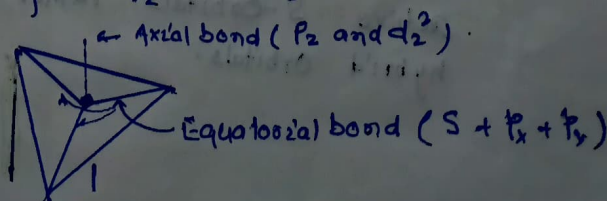 ← Axial bond (Pz and dz²).
A
Equatorial bond (S + Px + Py)